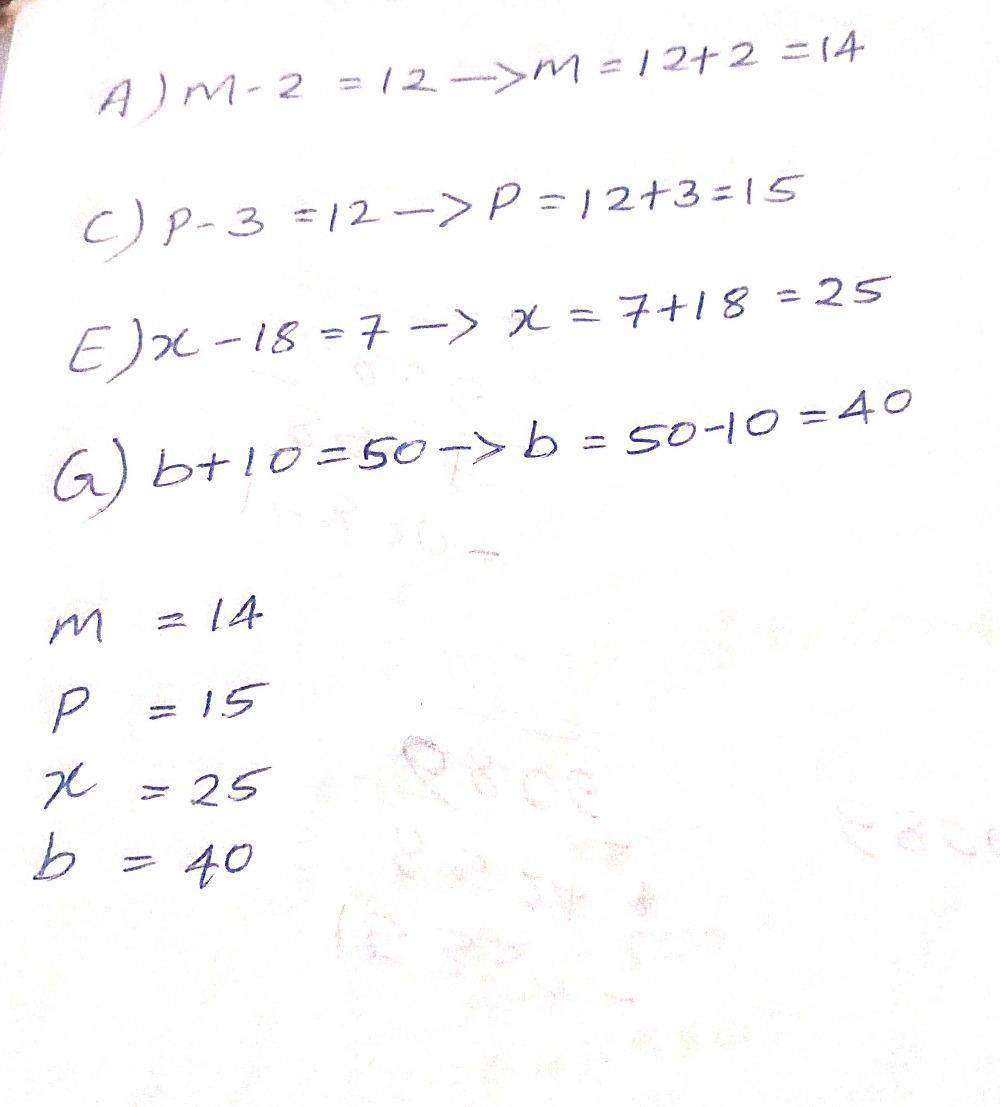 A) m-2 = 12 —> m = 12+2 = 14
C) p-3 = 12 —> p = 12+3 = 15
E) x-18 = 7 —> x = 7+18 = 25
G) b+10 = 50 —> b = 50-10 = 40
m = 14
p = 15
x = 25
b = 40